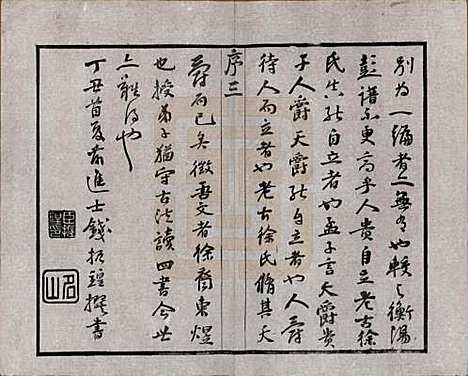 別為一編者亦無有也較之衡湯
彭譜亦更高乎人貴自立老古徐
氏其能自立者也孟子言天爵貴
于人爵天爵能自立者也人爵
待人而立者也老古徐氏脩其天
序三
爵而已矣徵吾文者徐裔東煜
也授弟子猶守古法讀四書今世
之難得也
丁丑首夏前進士錢 撰書